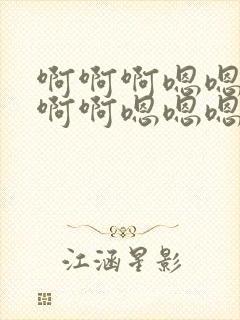 啊啊啊嗯嗯
啊啊嗯嗯嗯
江涵星影